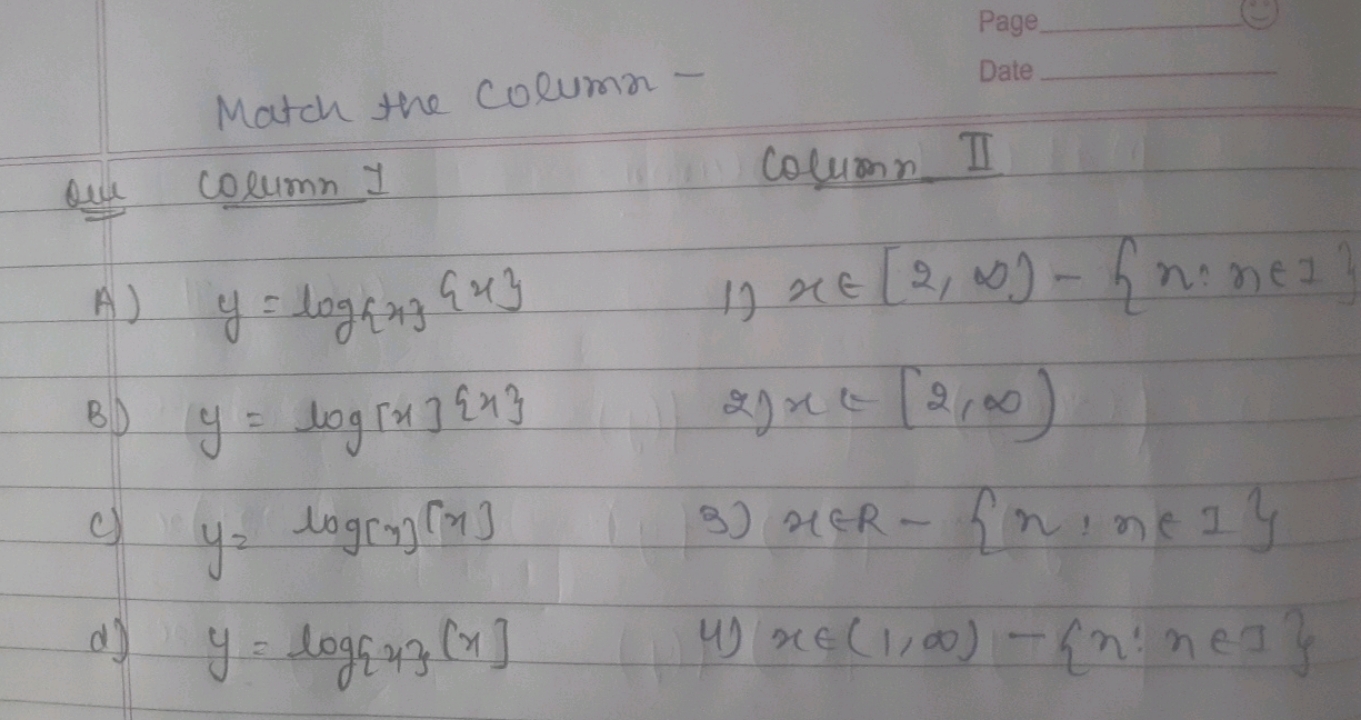 Page
Date
Match the column -
Que Column I Column II
A) y = log{x} {x} 1) x∈ [2, ∞) - {n: n∈I}
B) y = log[x] {x} 2) x ∈ [2, ∞)
c) y = log[x] [x] 3) x∈R - {n : n∈I}
d) y = log{x} [x] 4) x∈(1, ∞) - {n: n∈I}